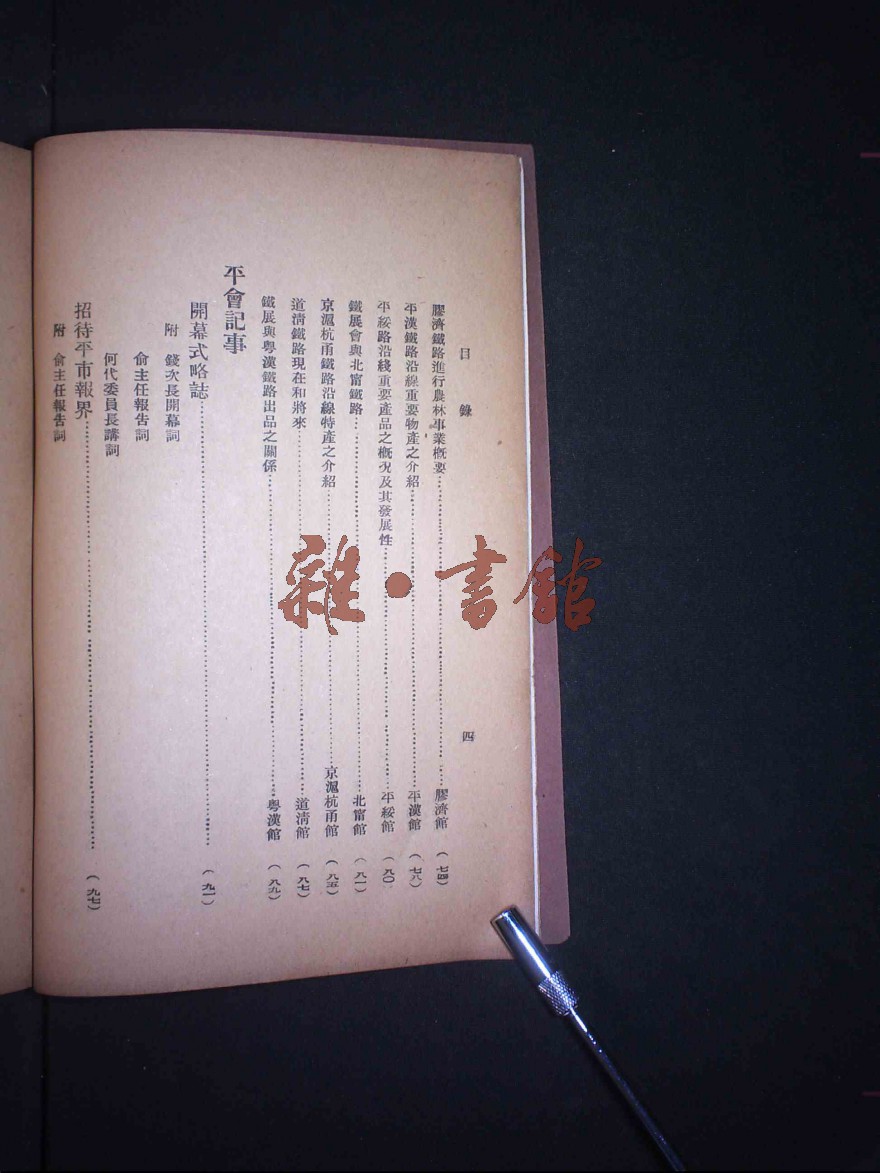 目錄 四
膠濟鐵路進行農林事業概要 膠濟館 (七四)
平漢鐵路沿線重要物產之介紹 平漢館 (七八)
平綏路沿綫重要產品之概況及其發展性 平綏館 (八〇)
鐵展會與北甯鐵路 北甯館 (八一)
京滬杭甬鐵路沿線特產之介紹 京滬杭甬館 (八五)
道清鐵路現在和將來 道清館 (八七)
鐵展與粵漢鐵路出品之關係 粵漢館 (八九)
平會記事
開幕式略誌 (九一)
附 錢次長開幕詞
俞主任報告詞
何代委員長講詞
招待平市報界 (九七)
附 俞主任報告詞
雜·書館